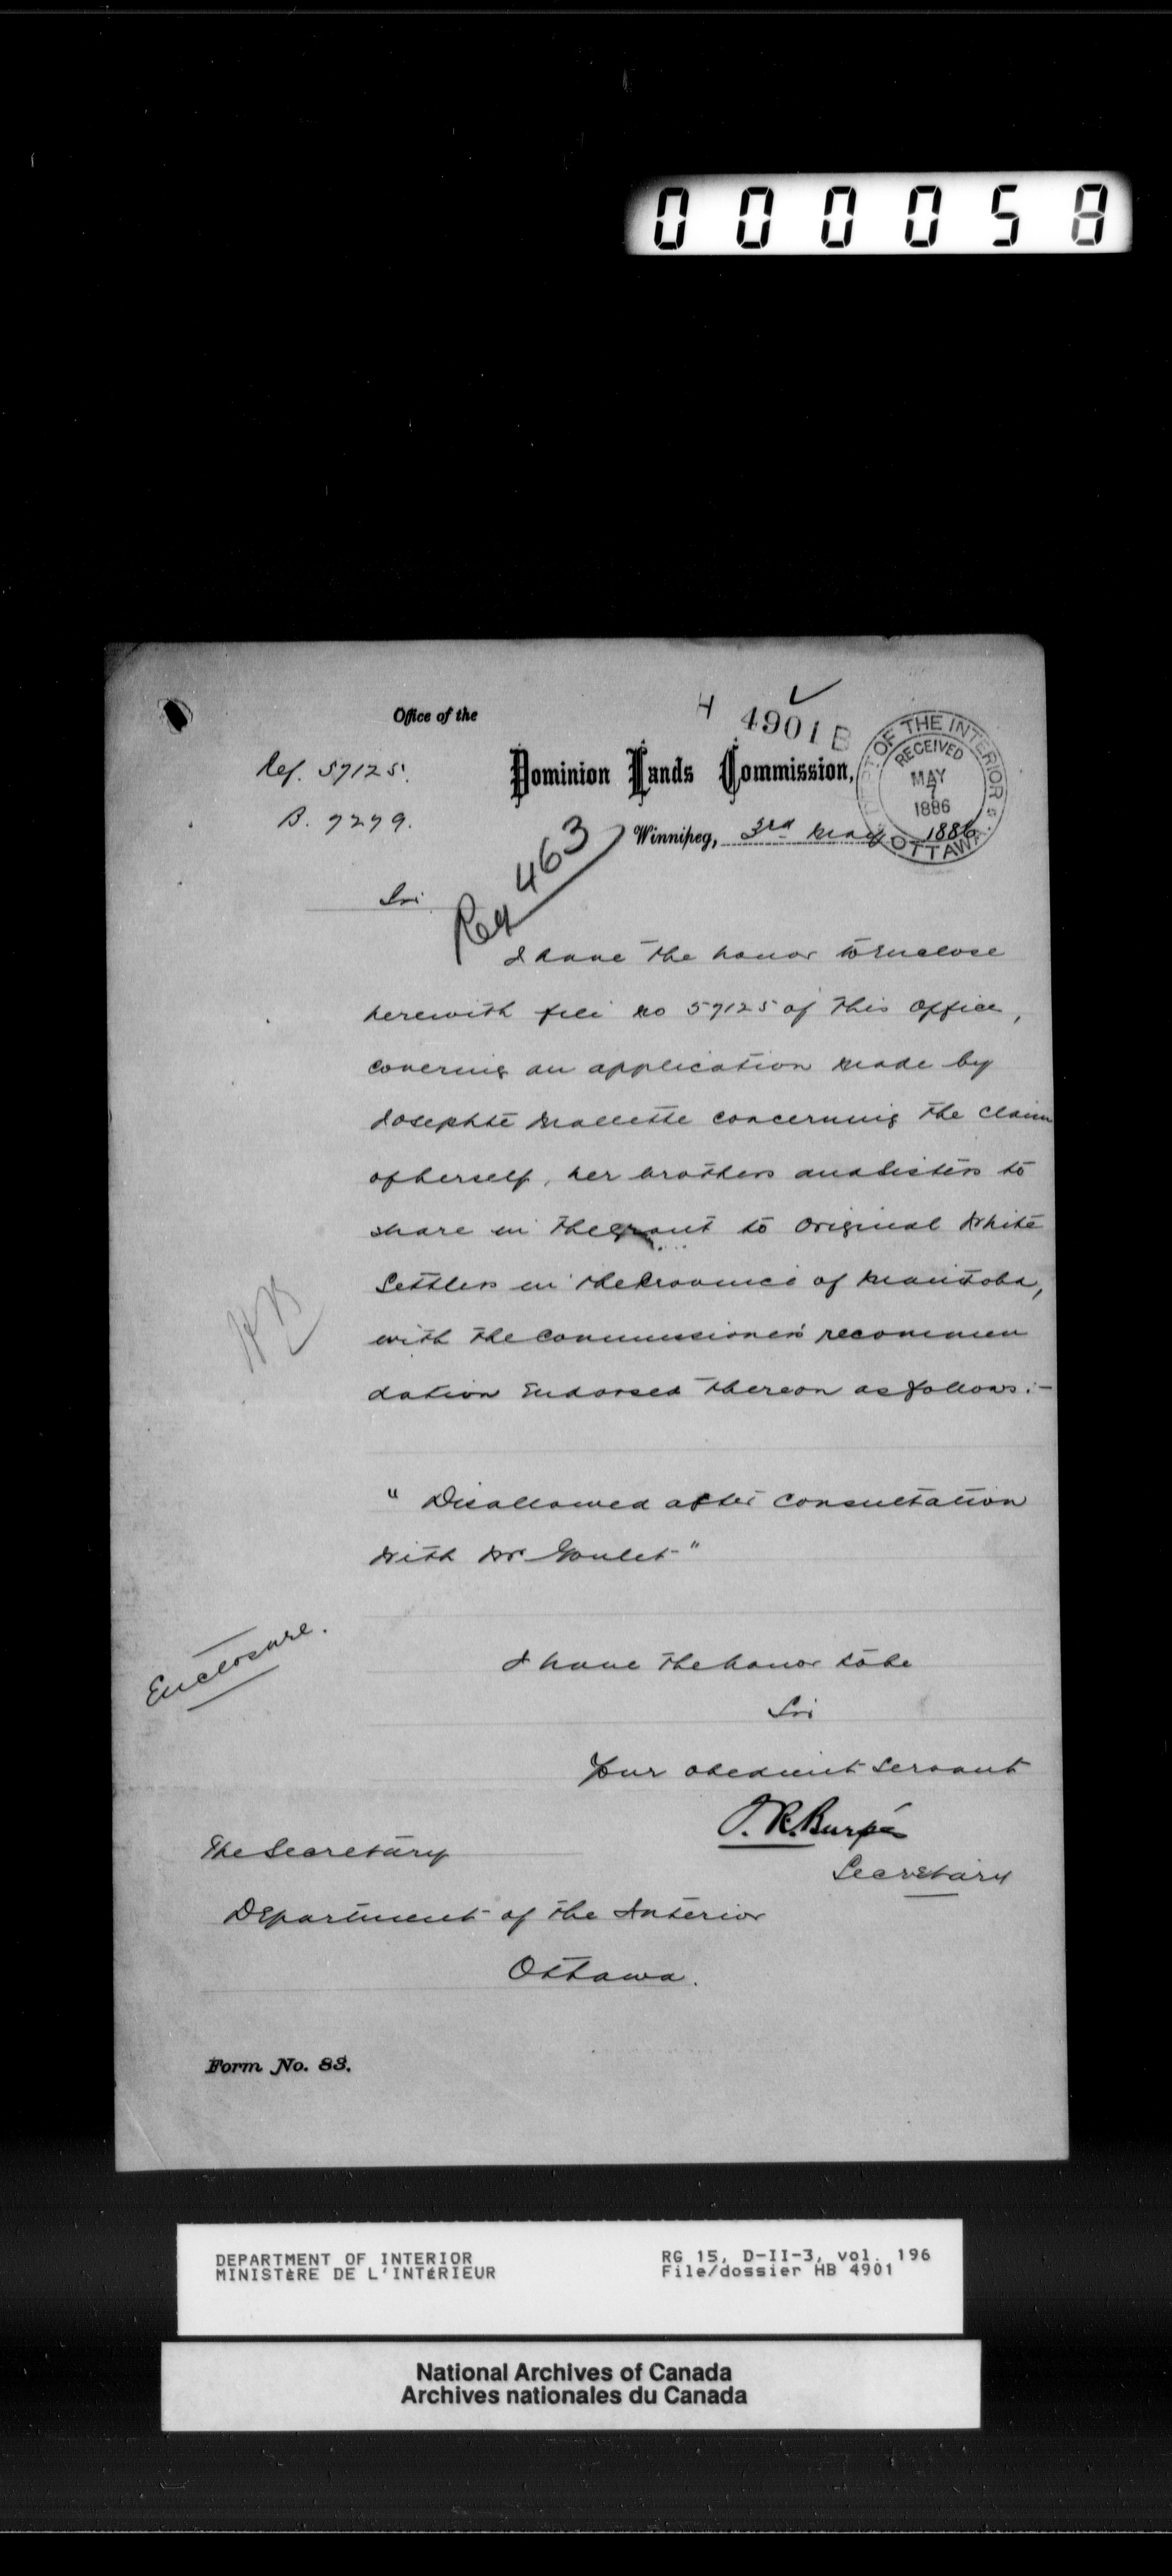 000058
Office of the
H 4901 B
Ref. 57125.
Dominion Lands Commission,
DEPT. OF THE INTERIOR
RECEIVED
MAY
7
1886
OTTAWA.
B. 7279.
Winnipeg, 3rd May 1886
Reg 463
Sir
I have the honor to Enclose
herewith file no 57125 of this Office,
covering an application made by
Josephte Mallette concerning the claim
of herself, her brothers and Sisters to
share in the grant to Original White
Settlers in the Province of Manitoba,
with the Commissioner's recommen
dation Endorsed thereon as follows:-
HB
"Disallowed after Consultation
With Mr Goulet"
Enclosure.
I have the honor to be
Sir
Your obedient Servant
The Secretary
Secretary
Department of the Interior
Ottawa.
Form No. 83.
DEPARTMENT OF INTERIOR
MINISTÈRE DE L'INTÉRIEUR
RG 15, D-II-3, vol. 196
File/dossier HB 4901
National Archives of Canada
Archives nationales du Canada